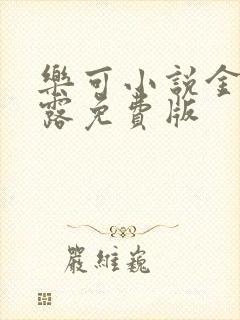 樂可小説金
露免費版
嚴維巍